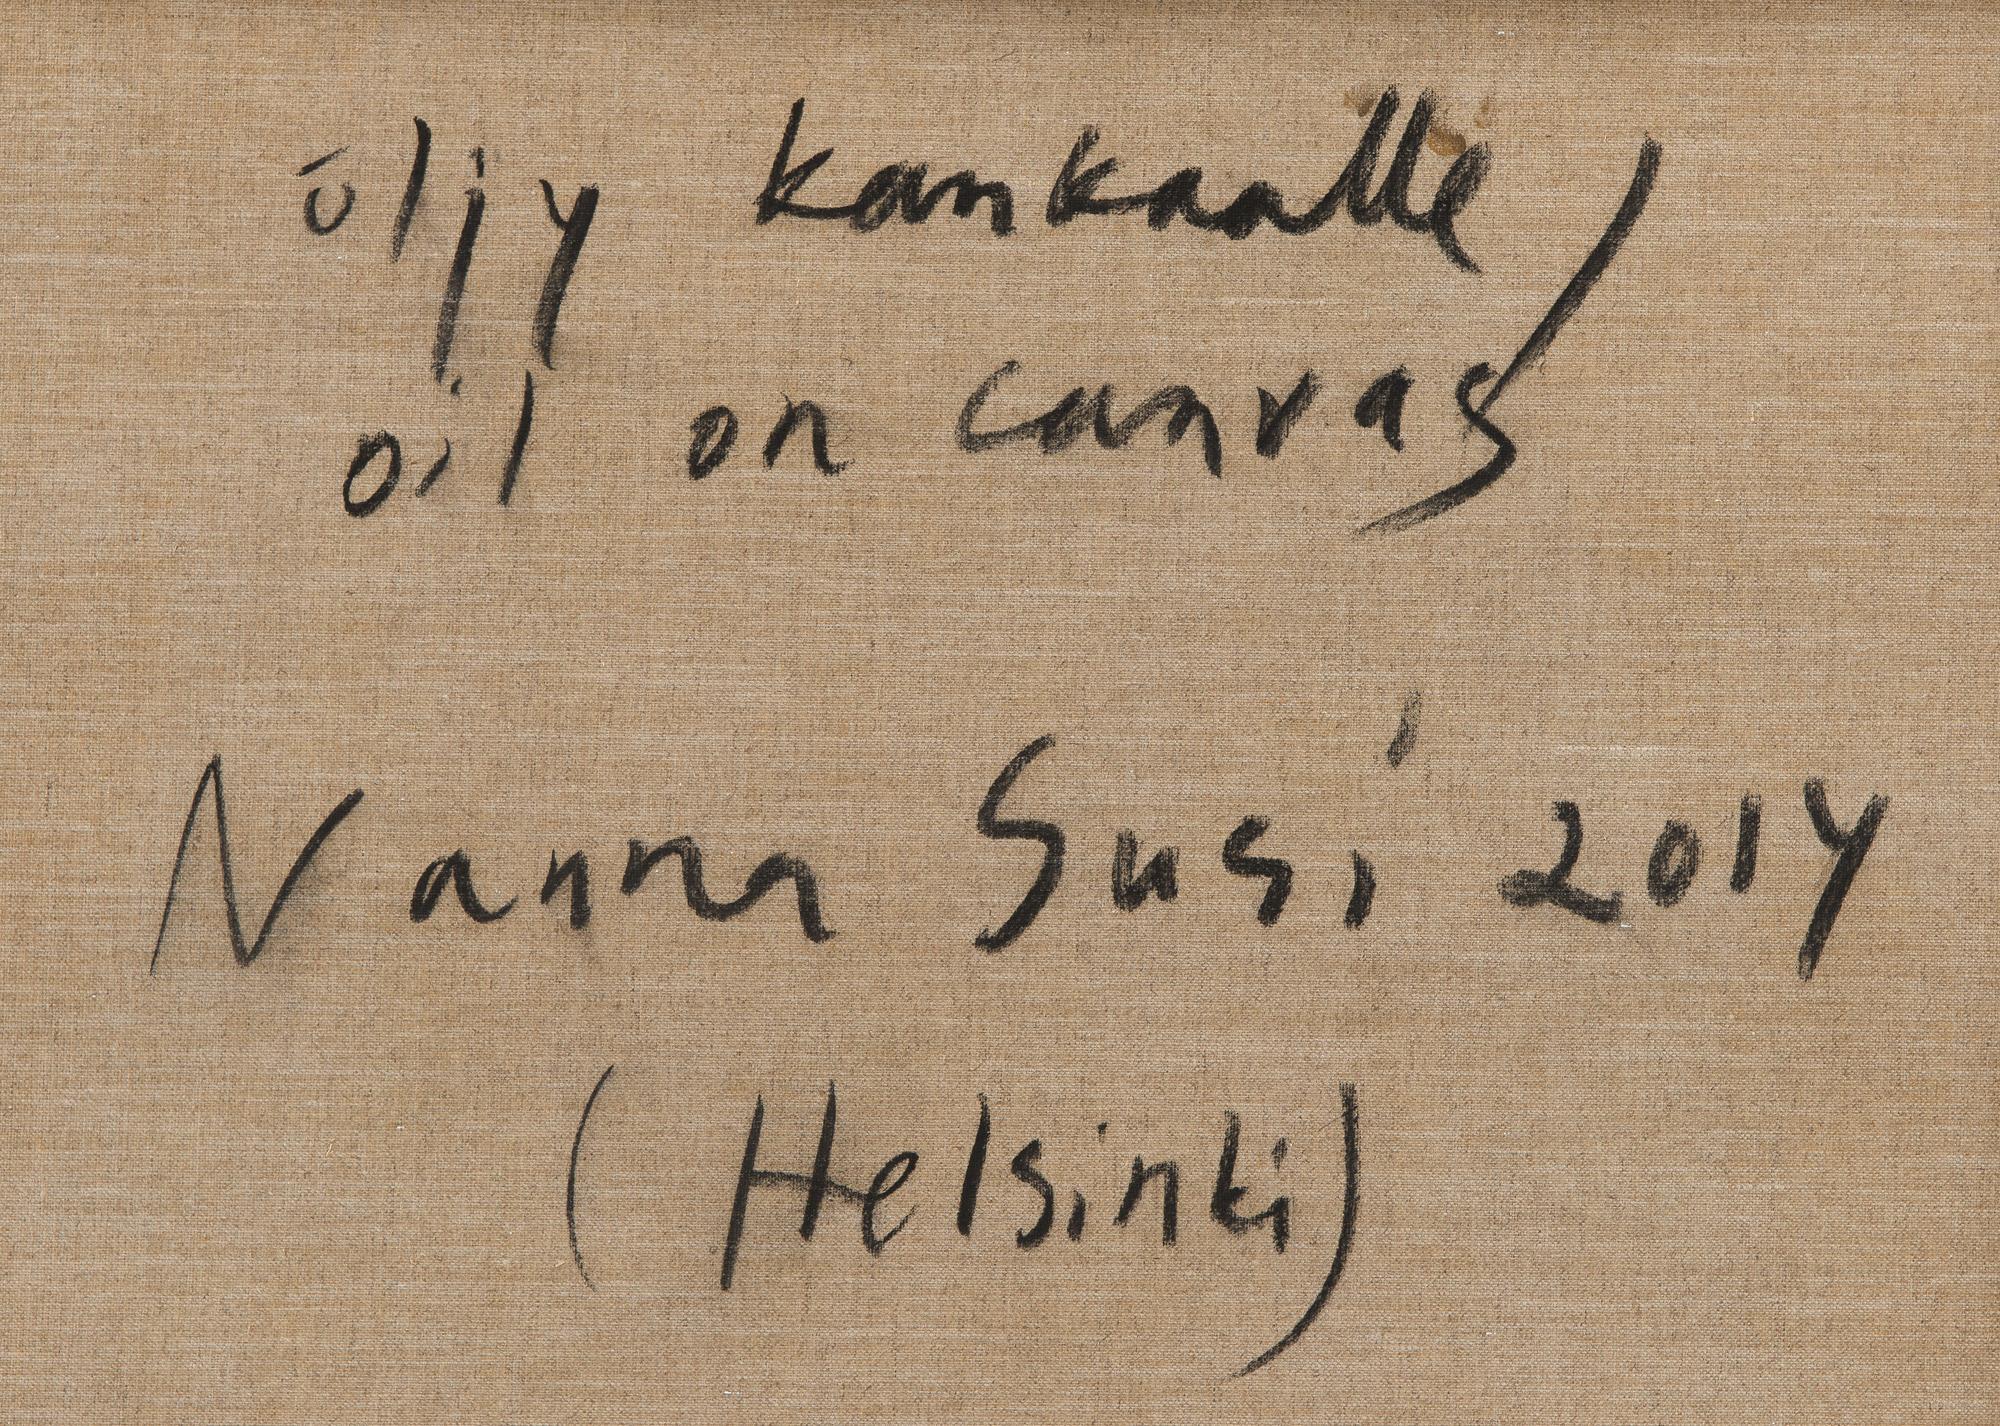 öljy kankaalle /
oil on canvas
Nanna Susi 2014
(Helsinki)